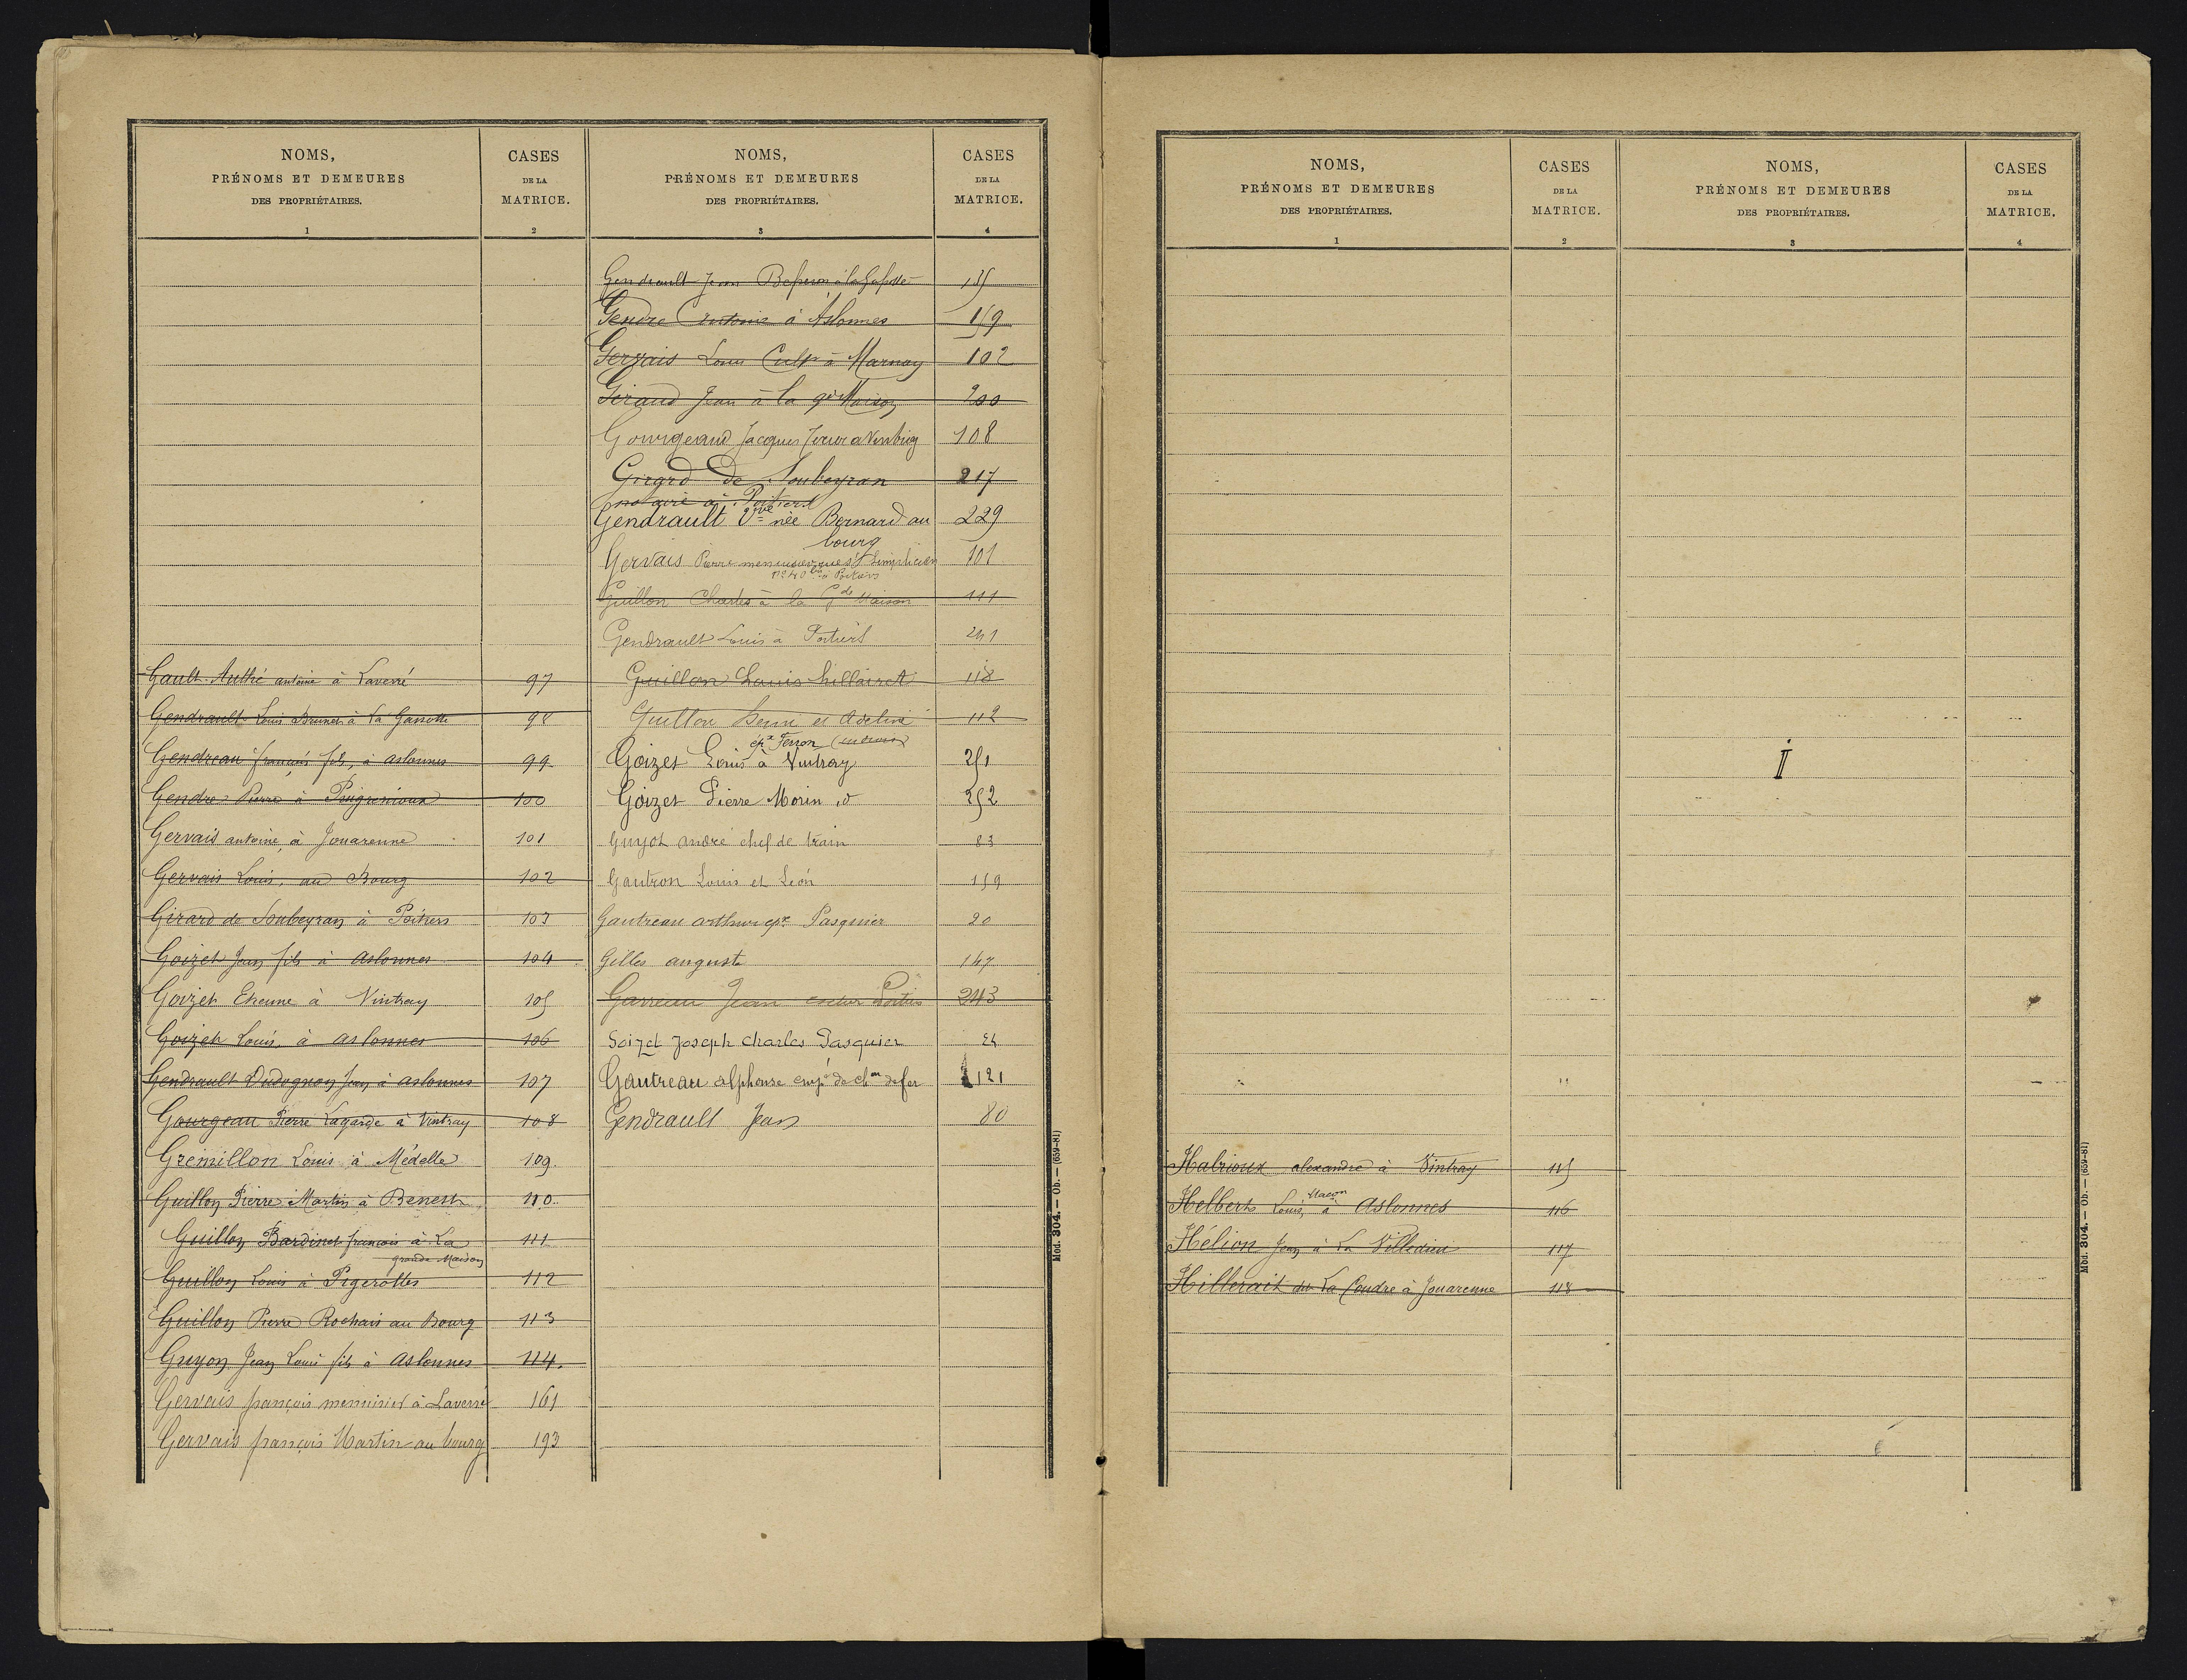 NOMS,
PRÉNOMS ET DEMEURES
DES PROPRIÉTAIRES.
1
CASES
DE LA
MATRICE.
2
Gault-Authé antoine à Laverré 97
Gendrault Louis Brunet à La Gassotte 98
Gendreau françois fils, à aslonnes 99
Gendre Pierre à Puigremioux 100
Gervais antoine, à Jouarenne 101
Gervais Louis, au Bourg 102
Girard de Soubeyran à Poitiers 103
Goizet Jean fils à aslonnes 104
Goizet Etienne à Vintray 105
Goizet Louis, à aslonnes 106
Gendrault Dudognon Jean à aslonnes 107
Gourgeau Pierre Lagarde à Vintray 108
Gremillon Louis à Médelle 109
Guillon Pierre Martin à Benest 110
Guillon Bardinet françois à La 111
grande Maison
Guillon Louis à Pigerolles 112
Guillon Pierre Rochais au Bourg 113
Guyon Jean Louis fils à aslonnes 114
Gervais françois menuisier à Laverré 161
Gervais françois Martin au bourg 193
NOMS,
PRÉNOMS ET DEMEURES
DES PROPRIÉTAIRES.
3
CASES
DE LA
MATRICE.
4
Gendrault Jean à la 135
Gendre Antoine à Aslonnes 159
Gervais Louis Cult à Marnay 102
Giraud Jean à la gde Maison 200
Gourgeaud Jacques à Vintray 108
Girard de Soubeyran 217
notaire à Poitiers
Gendrault Vve née Bernard au 229
bourg
Gervais Pierre menuisier rue St Simplicien 101
n° 40 bis à Poitiers
Guillon Charles à la Gde Maison 111
Gendrault Louis à Poitiers 241
Guillon Louis hillairet 118
Guillon henri et Adeline 112
épx Ferron
Goizet Louis à Vintray 251
Goizet Pierre Morin id 252
Guyot andré chef de train 83
Gautron Louis et Léon 159
Gautreau arthur epx Pasquier 20
Gilles auguste 147
Garreau Jean 243
Goizet Joseph Charles Pasquier 24
Gautreau alphonse empé de chin de fer 121
Gendrault Jean 80
Mod. 304. — Ob. — (659-81)
NOMS,
PRÉNOMS ET DEMEURES
DES PROPRIÉTAIRES.
1
CASES
DE LA
MATRICE.
2
Halrioux alexandre à Vintray 115
Macon
Helbert Louis, à Aslonnes 116
Hélion Jean à La Villedieu 117
Hillerait du La Coudre à Jouarenne 118
NOMS,
PRÉNOMS ET DEMEURES
DES PROPRIÉTAIRES.
3
CASES
DE LA
MATRICE.
4
I
Mod. 304. — Ob. — (659-81)